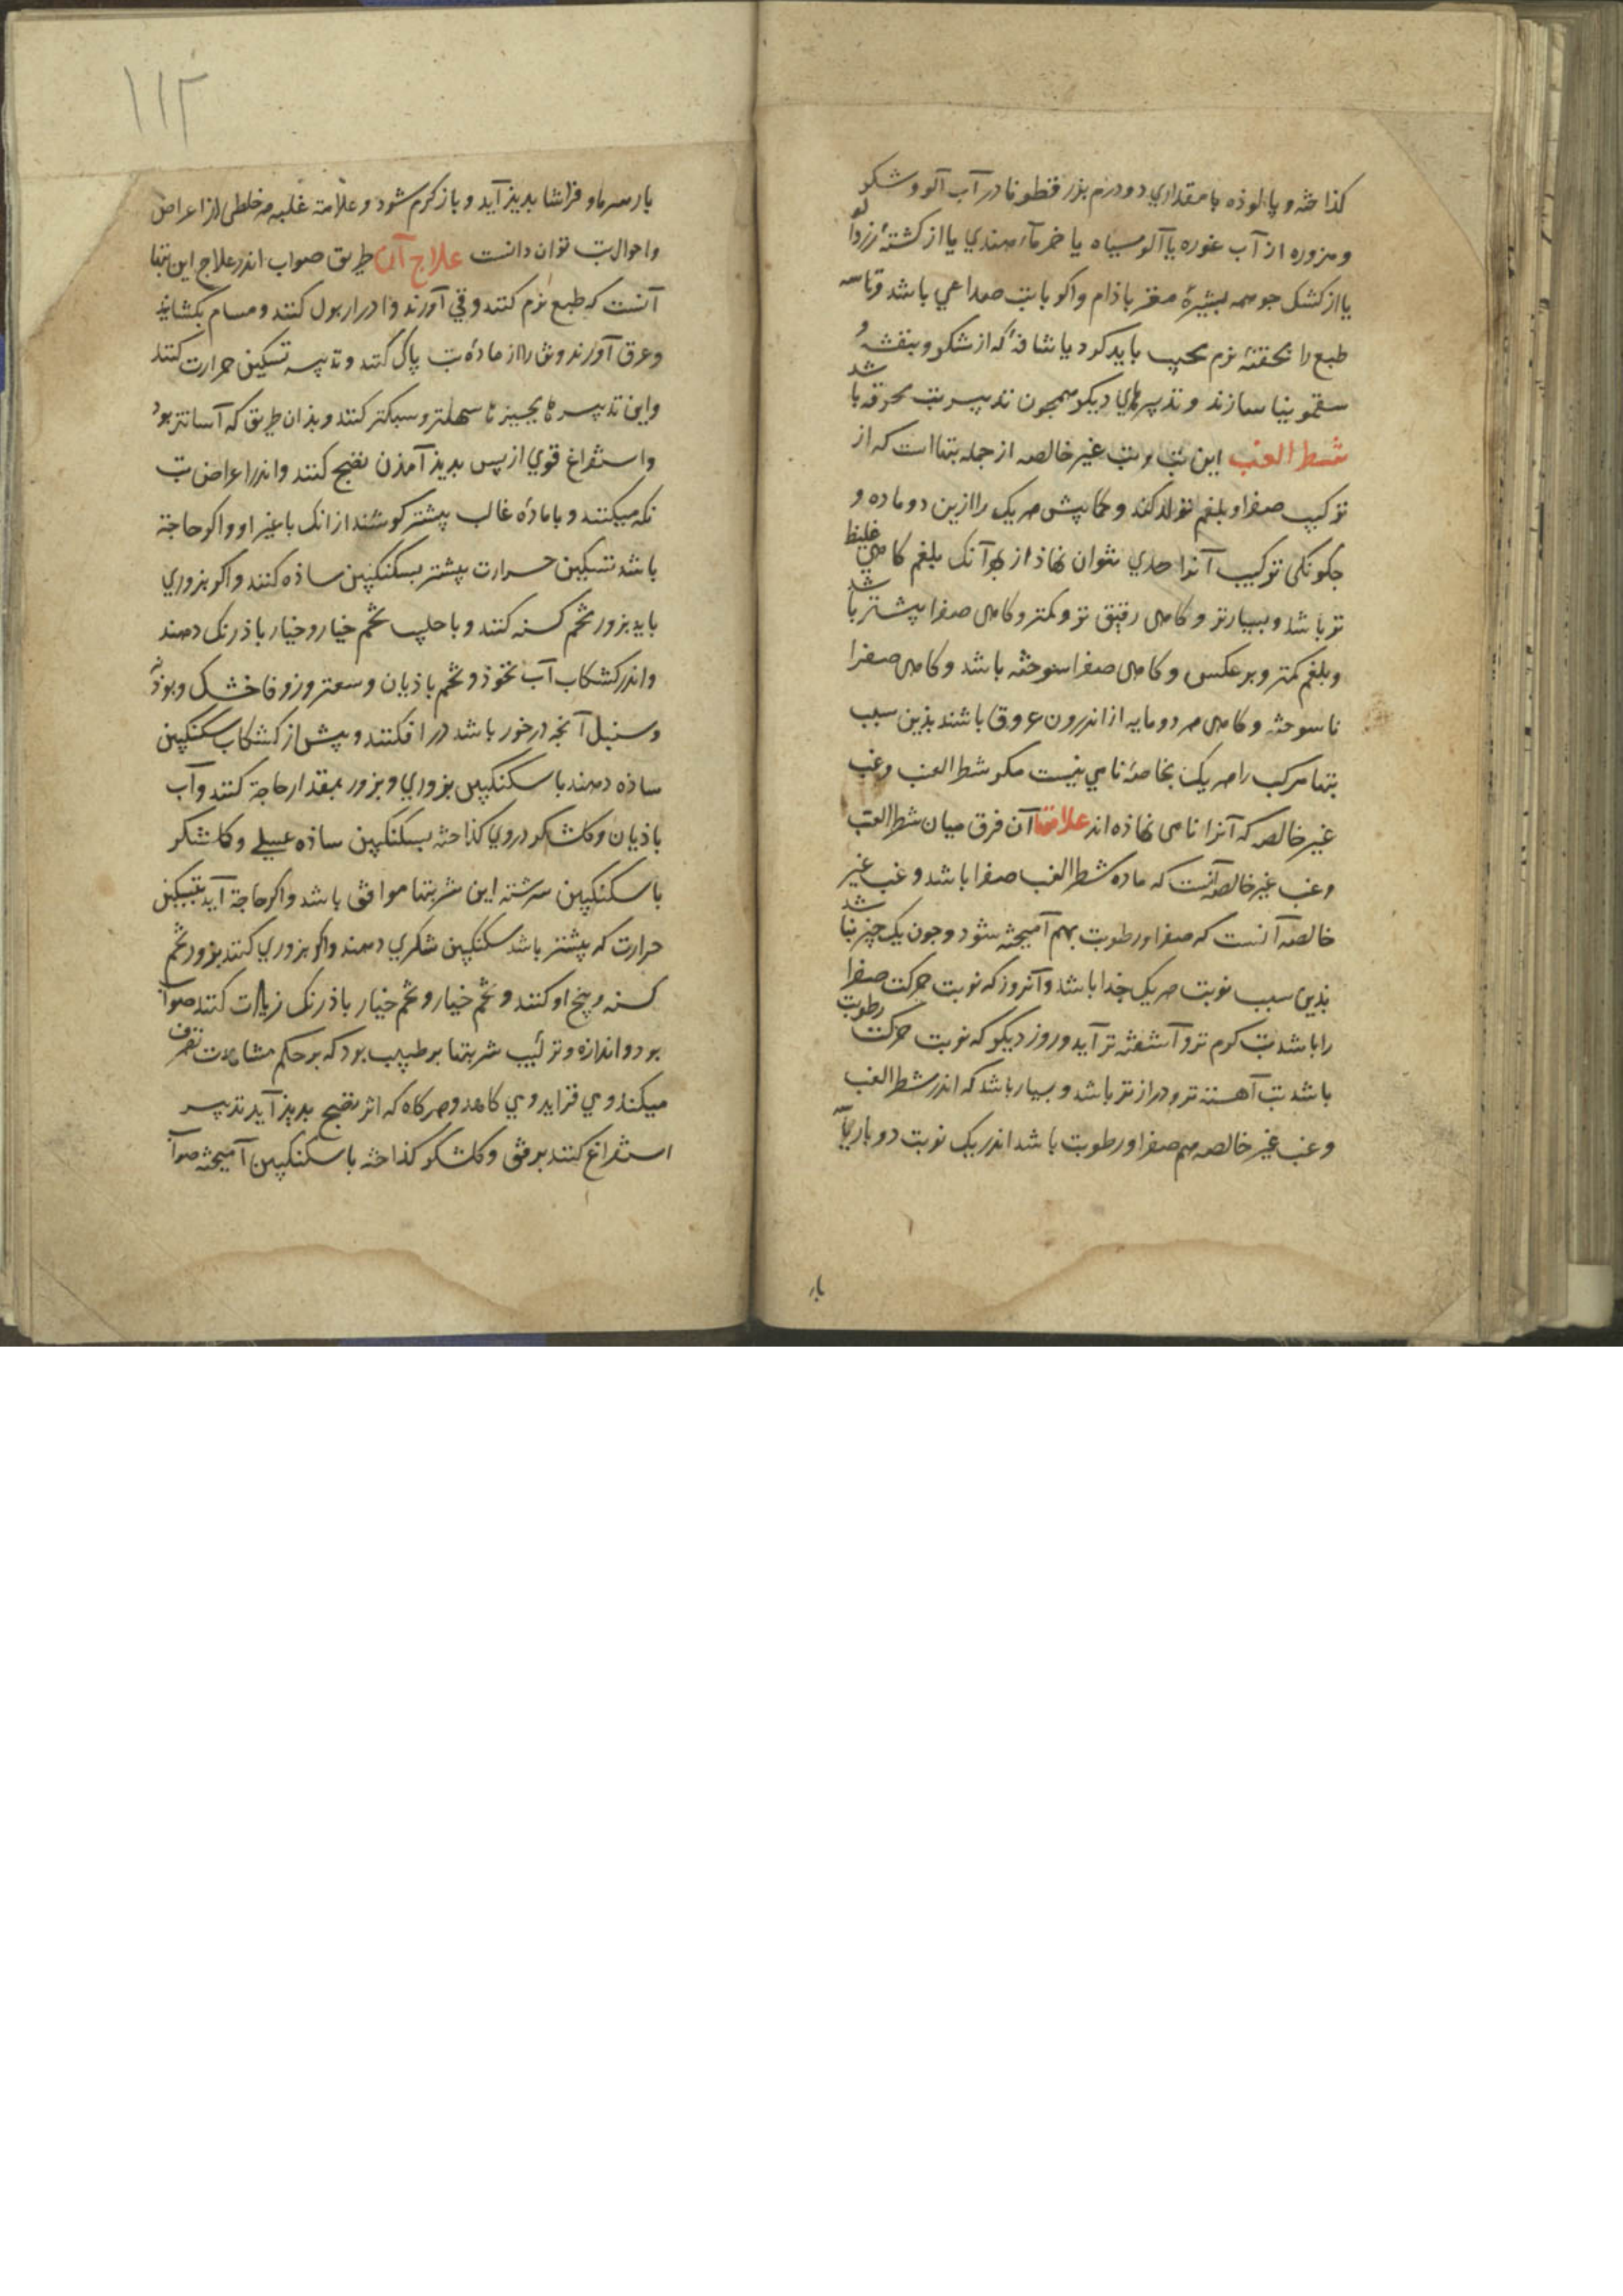 کذاخته و پالوذه با مقداری دو درم بزر قطونا در آب آلو و شکر
و مزوره از آب غوره یا آلو سیاه یا خرماء هندی یا از کشتهٔ زردآلو
یا از کشک جو همه بشیرهٔ مغز باذام واکر با تب صداعی باشد و تاسه
طبع را بحقنهٔ نرم مجیب باید کرد یا شافهٔ که از شکر و بنفشه و
سقمونیا سازند و تدبیرهای دیکر همجون تدبیر تب محرقه باشد
شطر الغب این تب و تب غیر خالصه از جمله تبها است که از
ترکیب صفرا و بلغم تولد کند و کما بیش هر یک را ازین دو ماده و
جکونکی ترکیب آنرا حدی نتوان نهاذ از بهر آنک بلغم کاهی غلیظ
تر باشد و بسیارتر و کاهی رقیق تر و کمتر و کاهی صفرا بیشتر باشد
و بلغم کمتر و بر عکس و کاهی صفرا سوخته باشد و کاهی صفرا
ناسوخته و کاهی هر دو مایه از اندرون عروق باشند بذین سبب
تبها مرکب را هر یک بخاصه نامی نیست مکر شطر الغب و غب
غیر خالصه که آنرا نامی نهاذه اند علامتها آن فرق میان شطر الغب
و غب غیر خالصه آنست که ماده شطر الغب صفرا باشد و غب غیر
خالصه آنست که صفرا و رطوبت بهم آمیخته شود و جون یک جیز نباشد
بذین سبب نوبت هر یک جدا باشد و آنروز که نوبت حرکت صفرا
را باشد تب کرم تر و آشفته تر آید و روز دیکر که نوبت حرکت رطوبت
باشد تب آهسته تر و درازتر باشد و بسیار باشد که اندر شطر الغب
و غب غیر خالصه هم صفرا و رطوبت باشد اندر یک نوبت دو بار یا
بار
۱۱۲
بار سرما و فراشا بدیذ آید و باز کرم شود و علامة غلبه هر خلطی از اعراض
و احوال تب توان دانست علاج آن طریق صواب اندر علاج این تبها
آنست که طبع نرم کنند و قی آورند و ادرار بول کنند و مسام بکشایند
و عرق آورند و تن را از مادهٔ تب پاک کنند و تدبیر تسکین حرارت کنند
و این تدبیرها بجیزها سهلتر و سبکتر کنند و بذان طریق که آسانتر بود
و استفراغ قوی از پس بدیذ آمذن نضج کنند و اندر اعراض تب
نکه میکنند و با مادهٔ غالب بیشتر کوشند از انک با غیر او و اکر حاجة
باشد تسکین حرارت بیشتر بسکنکبین ساذه کنند و اکر بزوری
باید بزور تخم کسنه کنند و با حلیب تخم خیار و خیار باذرنک دهند
و اندر کشکاب آب نخوذ و تخم باذیان و سعتر و زوفا خشک و پوذنه
و سنبل آنجه در خور باشد در افکنند و پیش از کشکاب سکنکبین
ساذه دهند یا سکنکبین بزوری و بزور بمقدار حاجة کنند و آب
باذیان و کلشکر در وی کذاخته بسکنکبین ساذه عسلی و کلشکر
با سکنکبین سرشته این شربتها موافق باشد و اکر حاجة آید بتسکین
حرارت که بیشتر باشد سکنکبین شکری دهند و اکر بزوری کنند بزور تخم
کسنه و بیخ او کنند و تخم خیار و تخم خیار باذرنک زیادت کنند صواب
بود و اندازه و ترتیب شربتها بر طبیب بود که بر حکم مشاهدت تصرف
میکند و می فزاید و می کاهد و هر کاه که اثر نضج بدیذ آید تدبیر
استفراغ کنند برفق و کلشکر کذاخته با سکنکبین آمیخته صواب